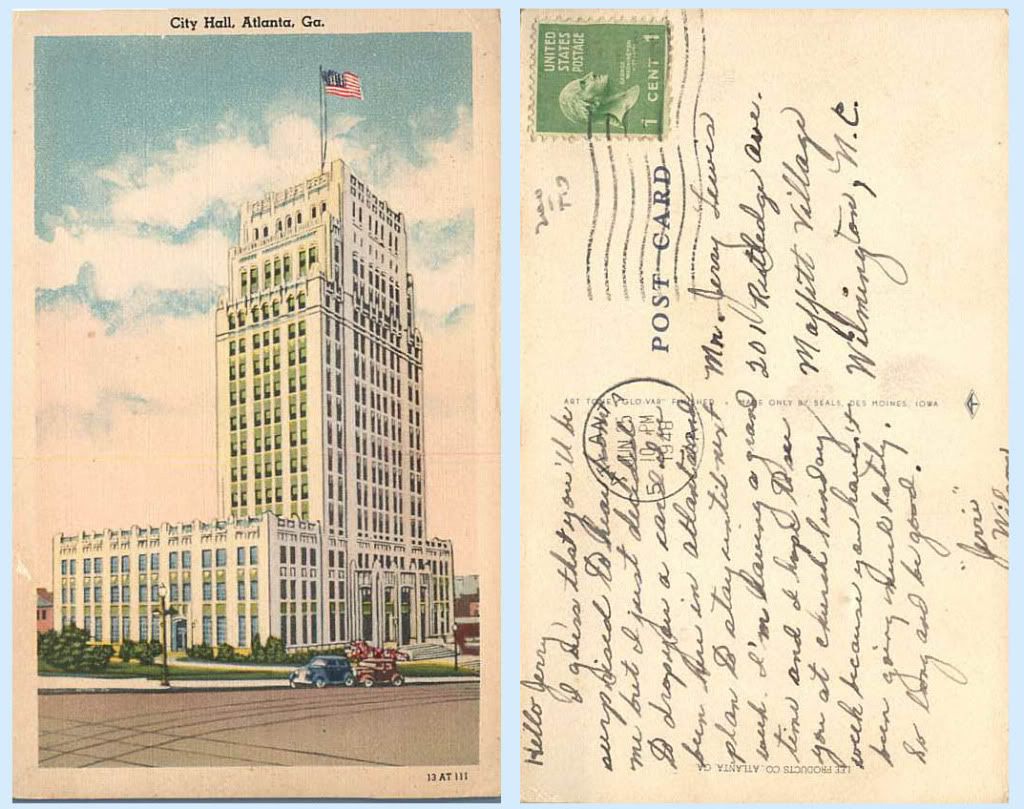 City Hall, Atlanta, Ga.
13 AT 111
UNITED
STATES
POSTAGE
1 CENT 1
POST CARD
ART TONE "GLO-VAR" FINISHED • MADE ONLY BY SEALS, DES MOINES, IOWA
LEE PRODUCTS CO. ATLANTA, GA.
ATLANTA
JUN 25
10 PM
1948
Hello Jerry
I guess that you'll be
surprised to hear from
me but I just decided
to drop you a card
been here in Atlanta and
plan to stay until next
week. I'm having a grand
time and I hope to see
you at church Sunday
week because you haven't
been going much lately.
So long and be good.
"Jerrie"
Mr. Jerry Lewis
201 Rutledge Ave.
Maffitt Village
Wilmington, N.C.